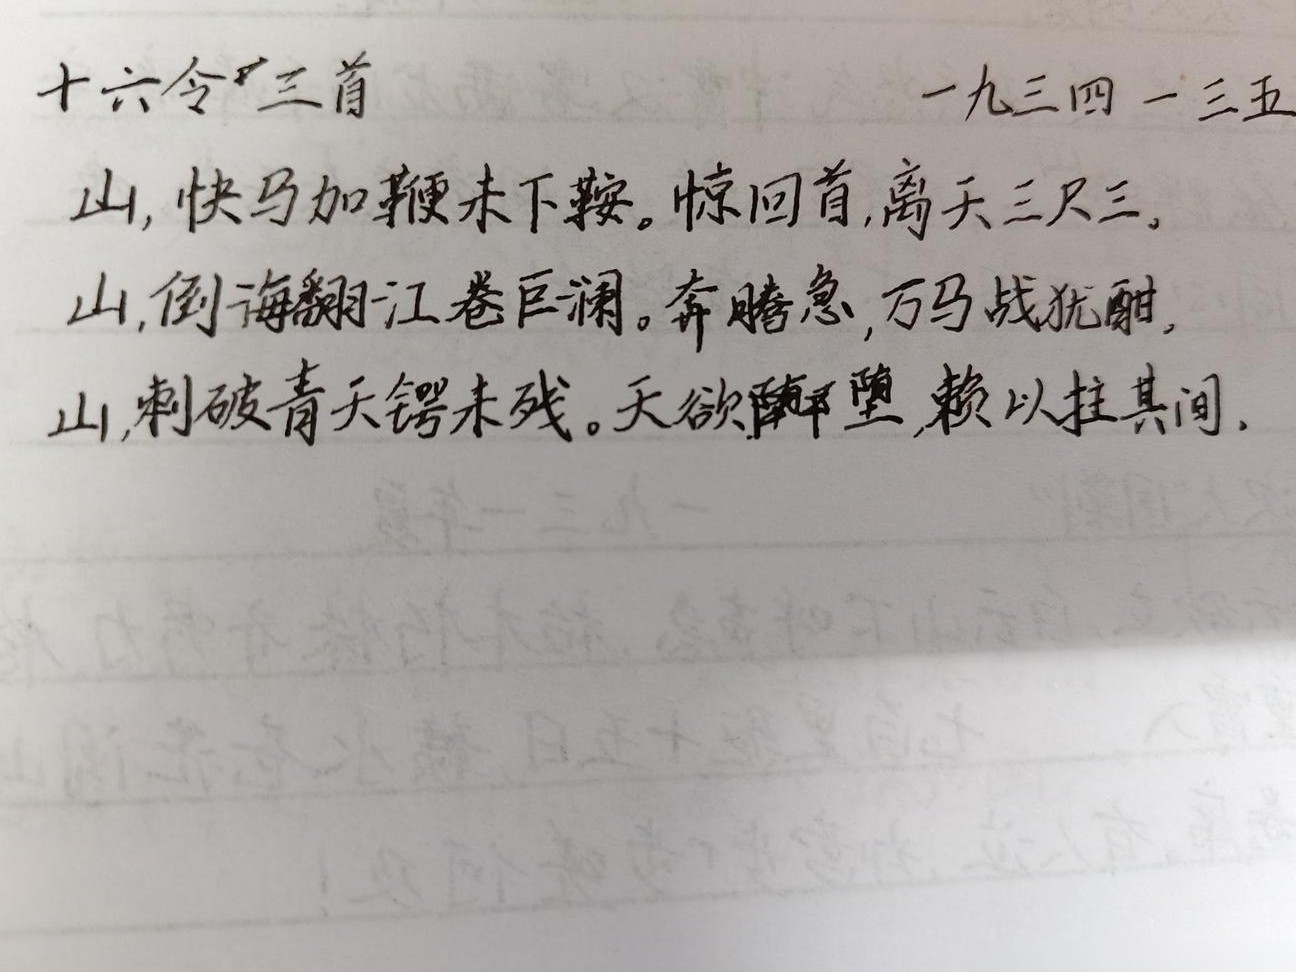 十六令三首 一九三四一三五
山,快马加鞭未下鞍。惊回首,离天三尺三。
山,倒海翻江卷巨澜。奔腾急,万马战犹酣。
山,刺破青天锷未残。天欲堕,赖以拄其间.